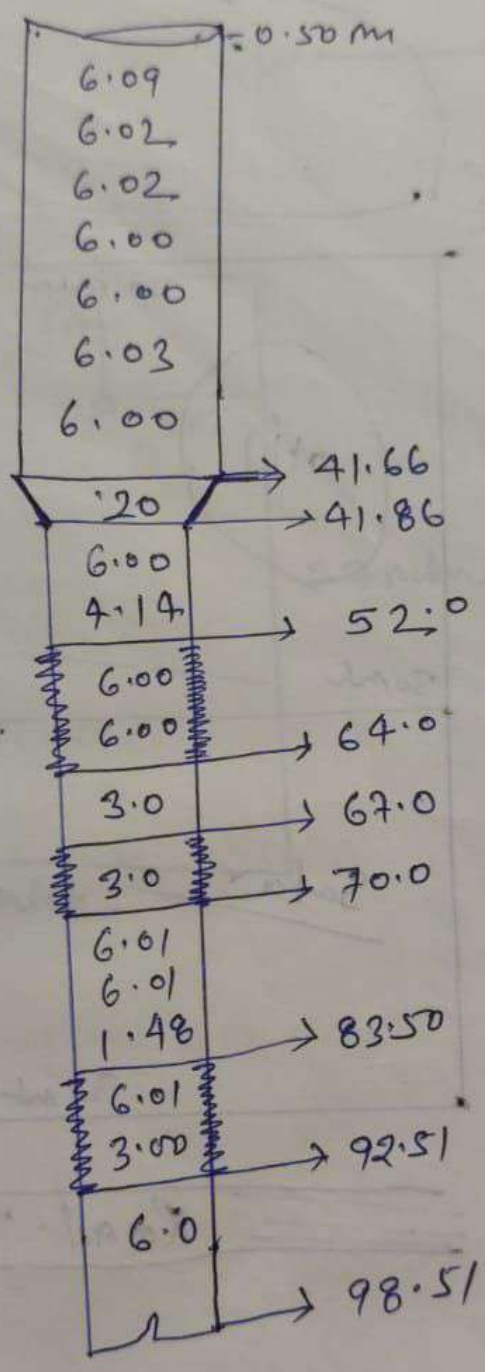 - 0.50 m
6.09
6.02
6.02
6.00
6.00
6.03
6.00
41.66
.20
41.86
6.00
4.14
52.0
6.00
6.00
64.0
3.0
67.0
3.0
70.0
6.01
6.01
1.48
83.50
6.01
3.00
92.51
6.0
98.51